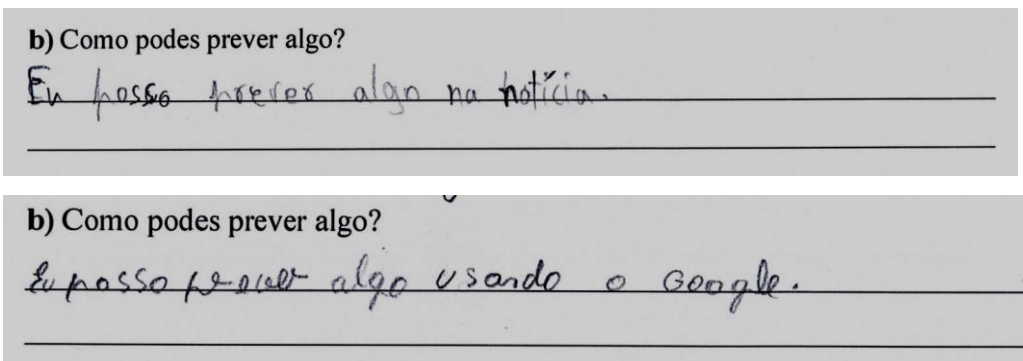 b) Como podes prever algo?
Eu posso prever algo na notícia.
b) Como podes prever algo?
Eu posso prever algo usando o Google.